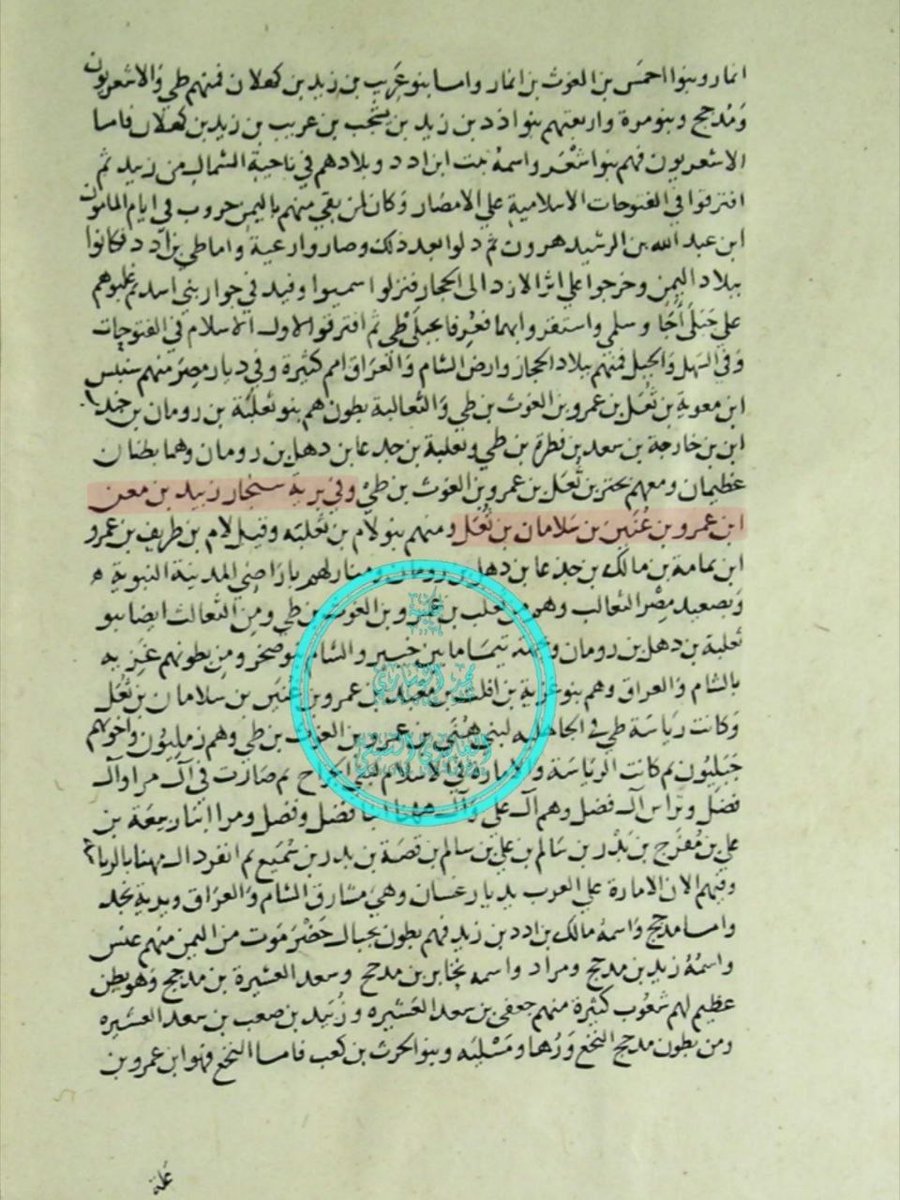 انمار وبنوا احمس بن الغوث بن انمار واما بنو عريب بن زيد بن كهلان فمنهم طي والاشعريون
ومذحج وبنو مرة واربعتهم بنو ادد بن زيد بن يشجب بن عريب بن زيد بن كهلان فاما
الاشعريون فهم بنو اشعر واسمه نبت ابن ادد وبلادهم في ناحية الشمال من زبيد ثم
افترقوا في الفتوحات الاسلامية علي الامصار وكان لمن بقي منهم باليمن حروب في ايام المامون
ابن عبد الله بن الرشيد هرون ثم دلوا بعد ذلك وصاروا رعية واما طي بن ادد فكانوا
ببلاد اليمن وخرجوا علي اثر الازد الي الحجاز فنزلوا سميرا وفيد في جوار بني اسد ثم غلبوهم
علي جبلي أجا وسلمي واستقروا بهما فعرفا بجبلي طي ثم افترقوا لاول الاسلام في الفتوحات
وفي السهل والجبل فمنهم ببلاد الحجاز وارض الشام والعراق امم كثيرة وفي ديار مصر منهم سنبس
ابن معوية بن ثعل بن عمرو بن الغوث بن طي والثعالبة بطون هم بنو ثعلبة بن رومان بن جند
ابن بن خارجة بن سعد بن فطرة بن طي وثعلبة بن جدعا بن دهل بن رومان وهما بطنان
عظيمان ومعهم بحتر بن ثعل بن عمرو بن الغوث بن طي وفي برية سنجار زبيد بن معن
ابن عمرو بن عُنَين بن سلامان بن ثُعَل ومنهم بنو لام بن ثعلبه وقيل لام بن طريف بن عمرو
ابن ثمامة بن مالك بن جدعا بن دهل بن رومان ومنازلهم باراضي المدينة النبوية
وبصعيد مصر الثعالب وهو من ثعلب بن عمرو بن الغوث بن طي ومن الثعالث ايضا بنو
ثعلبة بن دهل بن رومان وجهة تيما ما بين خيبر والشام بنو صخر ومن بطونهم غزية
بالشام والعراق وهم بنو غزية بن افلت بن معبد بن عمرو بن عنين بن سلامان بن ثعل
وكانت رياسة طي في الجاهليه لبني هني بن عمرو بن الغوث بن طي وهم زمليون واخوتهم
جبليون ثم كانت الرياسة والامارة في الاسلام لبني الجراح ثم صارت في آل مرا وآل
فضل وتراس آل فضل وهم آل علي وآل مهنا ابنا فضل وفضل ومرا ابنا ربيعة بن
علي بن مفرج بن بدر بن سالم بن علي بن سالم بن قصة بن بدر بن سميع ثم انفرد ال مهنا بالرياسة
وفيهم الان الامارة علي العرب بديار غسان وهي مشارق الشام والعراق وبرية نجد
واما مذحج واسمه مالك بن ادد بن زيد فهم بطون بجبال حضرموت من اليمن منهم عنس
واسمُهُ زيد بن مدحج ومراد واسمه يخابر بن مدحج وسعد العشيرة بن مدحج وهو بطن
عظيم لهم شعوب كثيرة منهم جعفي بن سعد العشيره وزُبَيد بن صعب بن سعد العشيره
ومن بطون مدحج النخع ورها ومسليه وبنو الحرث بن كعب فاما النخع فهو ابن عمرو بن
علة